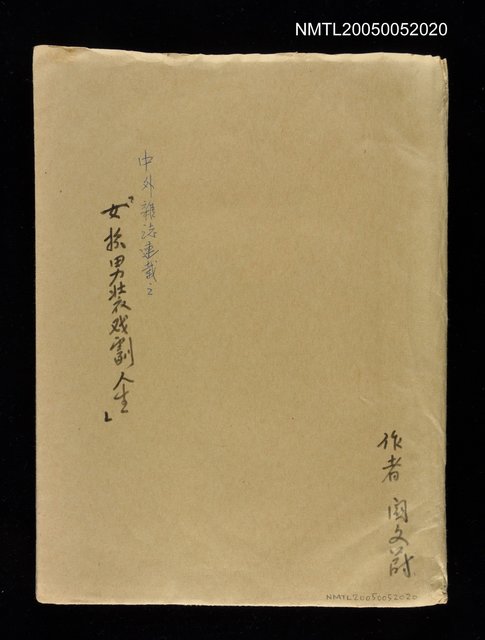 NMTL20050052020
中外雜誌連載之
「女扮男裝戏劇人生」
作者 閻文蔚
NMTL20050052020